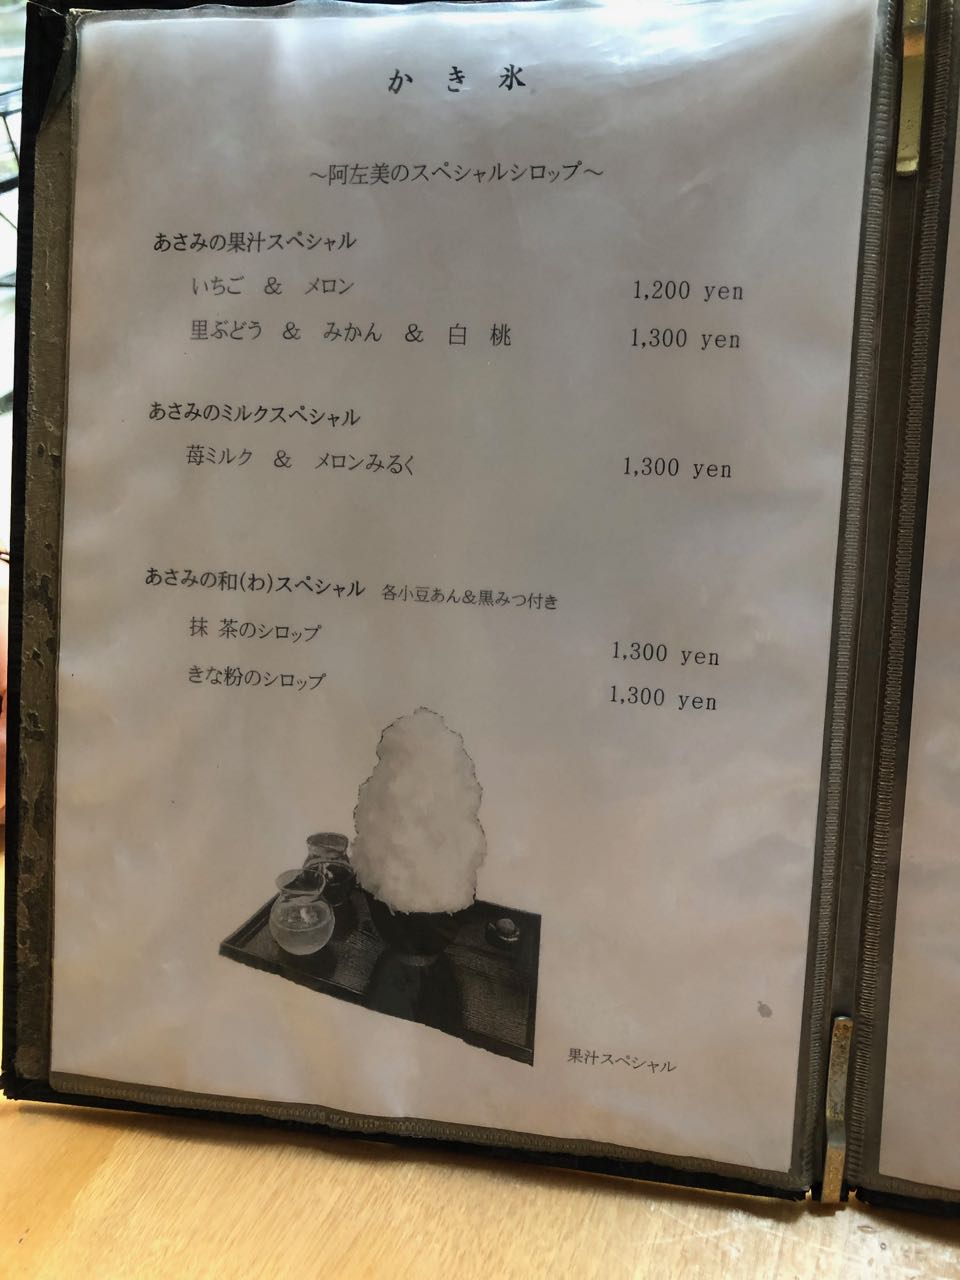 かき氷
～阿左美のスペシャルシロップ～
あさみの果汁スペシャル
いちご ＆ メロン 1,200 yen
里ぶどう ＆ みかん ＆ 白 桃 1,300 yen
あさみのミルクスペシャル
苺ミルク ＆ メロンみるく 1,300 yen
あさみの和(わ)スペシャル 各小豆あん＆黒みつ付き
抹 茶のシロップ 1,300 yen
きな粉のシロップ 1,300 yen
果汁スペシャル